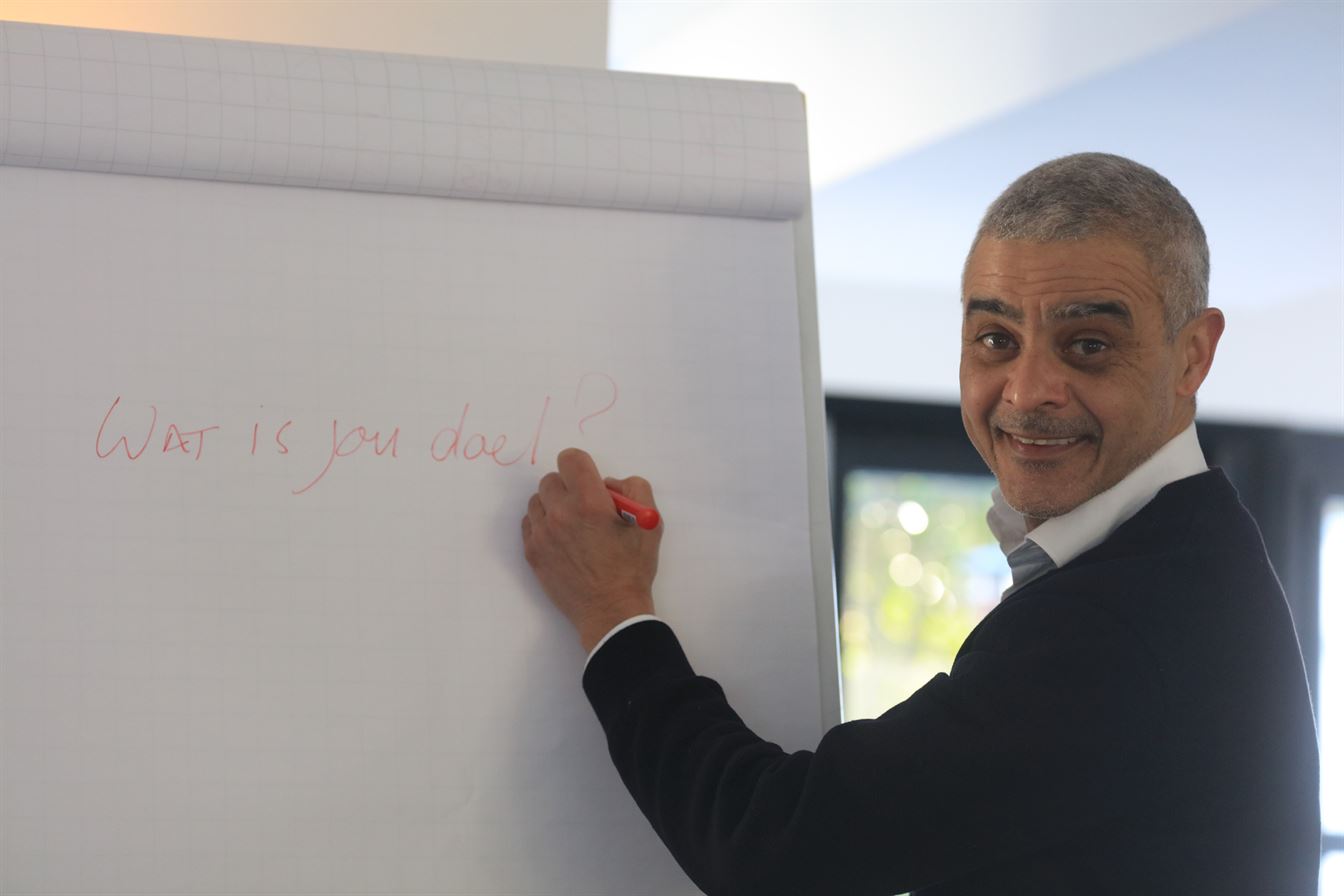 WAT is jou doel?